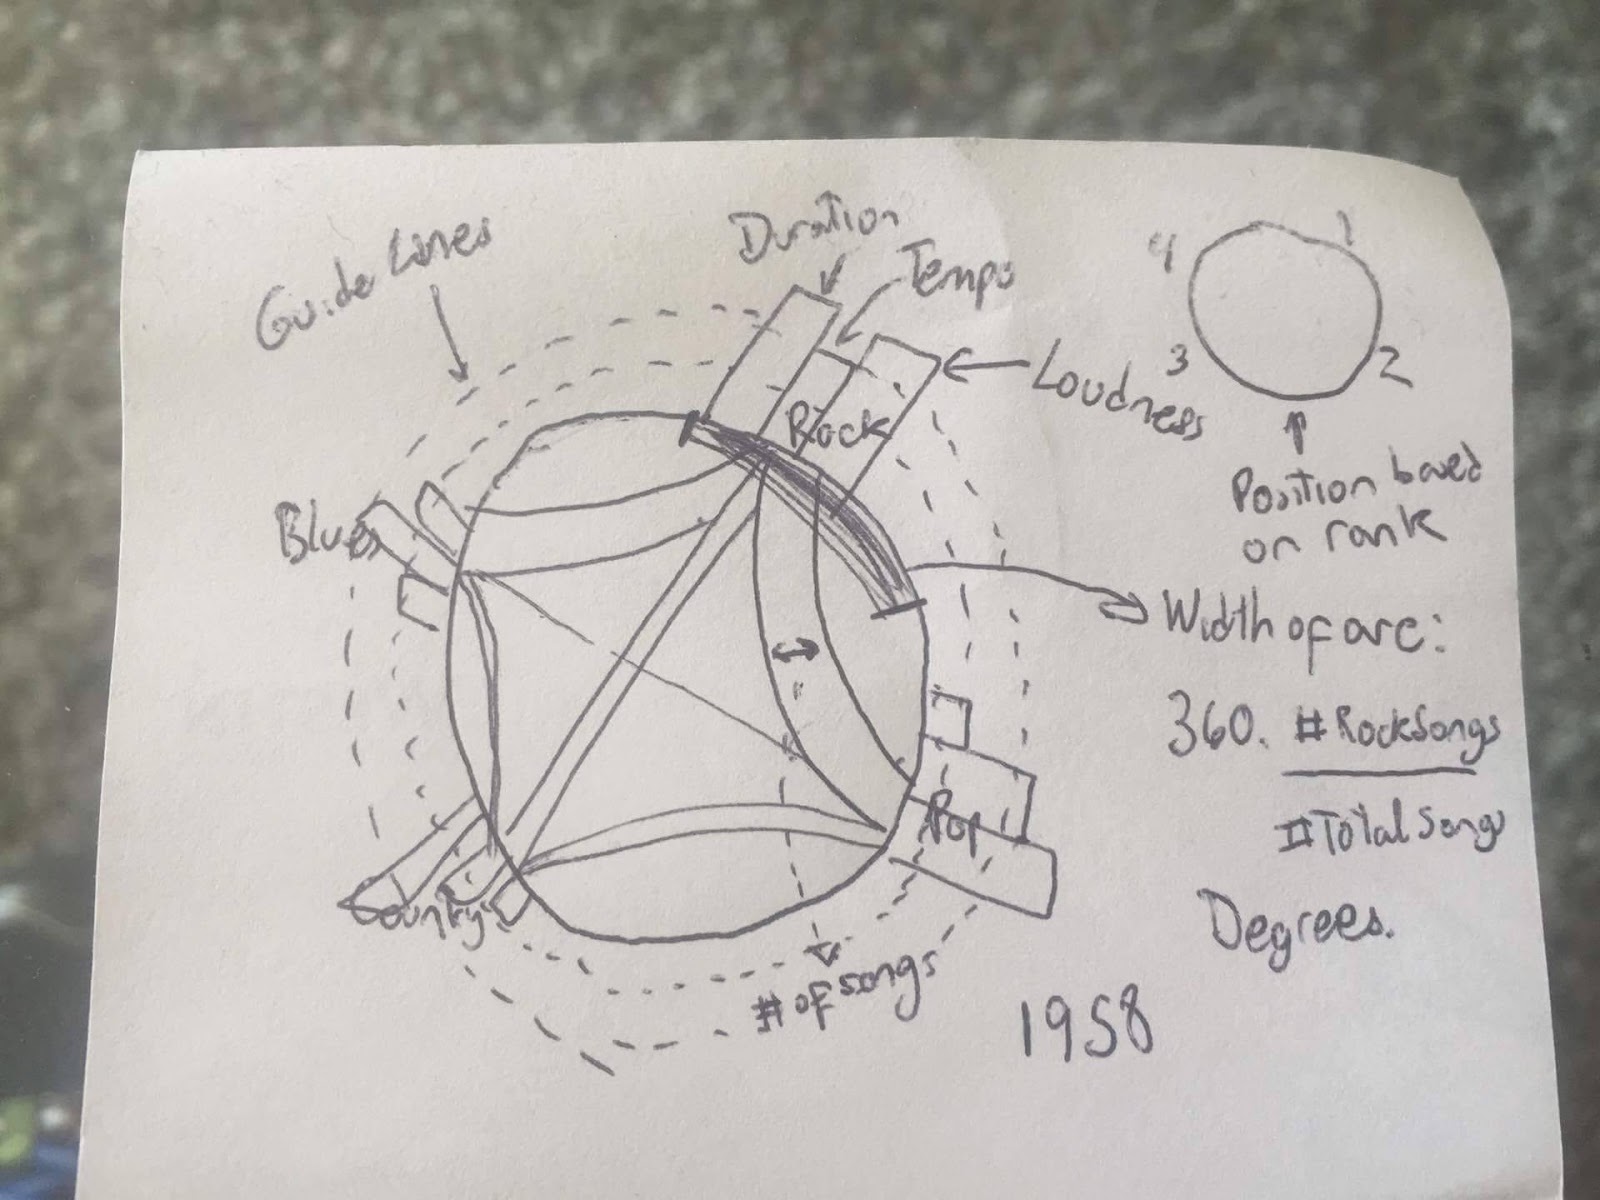 Guide Lines
Duration
Tempo
Loudness
Rock
Blues
Country
Pop
# of songs
1958
1
2
3
4
Position based
on rank
Width of arc:
360. # RockSongs
# Total Songs
Degrees.